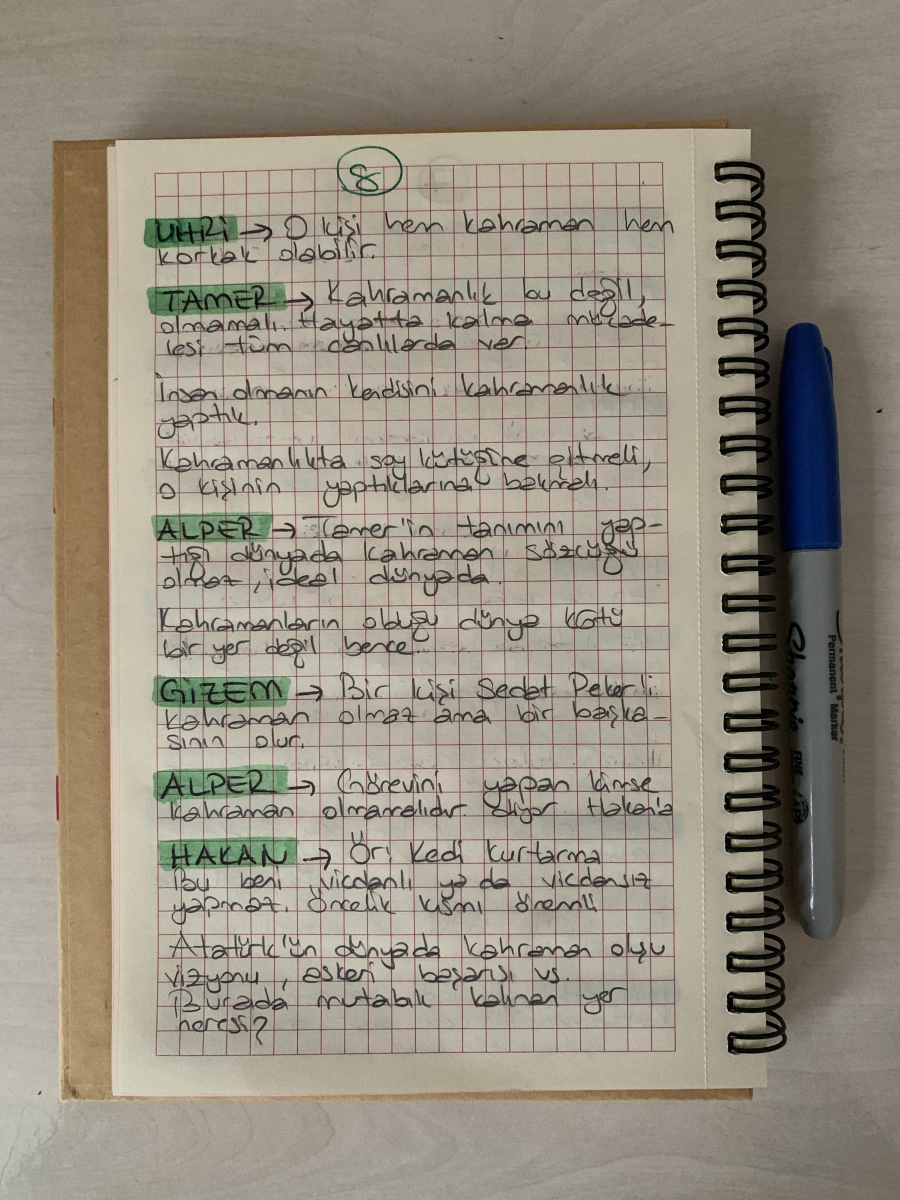 8
UHRİ → O kişi hem kahraman hem
korkak olabilir.
TAMER → Kahramanlık bu değil,
olmamalı. Hayatta kalma mücade-
lesi tüm canlılarda var
İnsan olmanın kendisini kahramanlık
yaptık.
Kahramanlıkta soy kütüğüne gitmeli,
o kişinin yaptıklarına bakmalı.
ALPER → Tamer'in tanımını yap-
tığı dünyada kahraman sözcüğü
olmaz, ideal dünyada.
Kahramanların olduğu dünya kötü
bir yer değil bence.
GİZEM → Bir kişi Sedat Peker'li
kahraman olmaz ama bir başka-
sının olur.
ALPER → Görevini yapan kimse
kahraman olmamalıdır. diyor Hakan'a
HAKAN → Ör; Kedi kurtarma
Bu beni vicdanlı ya da vicdansız
yapmaz. Öncelik kısmı önemli
Atatürk'ün dünyada kahraman oluşu
vizyonu, askeri başarısı vs.
Burada mutabık kalınan yer
neresi?
Sharpie
FINE
Permanent Marker